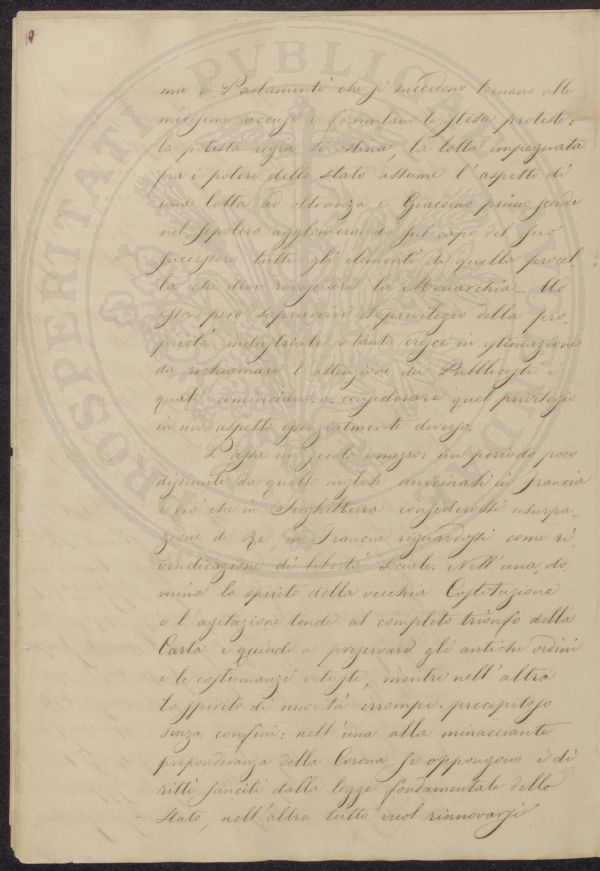 ma i Parlamenti che si succedono tornano alle
medesime accuse e formulano le stesse proteste:
la potestà regia si ostina, la lotta impegnata
fra i poteri dello stato assume l'aspetto di
una lotta ad oltranza e Giacomo primo scende
nel sepolcro agglomerando sul capo del suo
successore tutti gli elementi di quella procel
la che deve rovesciare la Monarchia. Ad
essa però sopravvive il privilegio della pro-
prietà industriale e tanto cresce in estimazione
da richiamare l'attenzione dei Pubblicisti i
quali cominciano a considerare quel privilegio
in un aspetto essenzialmente diverso.
Passa un secolo e mezzo: un periodo poco
dissimile da quello inglese avvicinasi in francia
e ciò che in Inghilterra considerossi usurpa-
zione di Re, in Francia riguardossi come ri-
vendicazione di libertà sociale. Nell'una do-
mina lo spirito della vecchia Costituzione
e l'agitazione tende al completo trionfo della
Carta e quindi a preservare gli antichi ordini
e le costumanze vetuste, mentre nell'altra
lo spirito di novità irrompe precipitoso
senza confini: nell'una alla minacciante
preponderanza della Corona si oppongono i di
ritti sanciti dalla legge fondamentale dello
stato, nell'altra tutto vuol rinnovarsi
PROSPERITATI PUBLICAE AUGENDAE